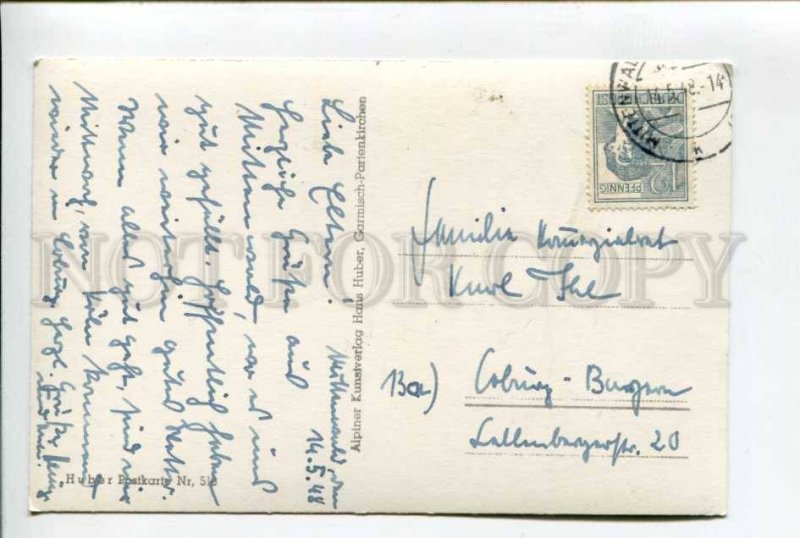 Mittenwald, den
14.5.48
Liebe Eltern!
Herzliche Grüße aus
Mittenwald, wo es uns
gut gefällt. Hoffentlich haben
wir weiterhin gutes Wetter.
Wenn alles gut geht, sind wir
Mittwoch, von Köln kommend
wieder in Coburg. Herzl. Grüße
Alpiner Kunstverlag Hans Huber, Garmisch-Partenkirchen
Huber Postkarte Nr. 51
MITTENWAL
14.5.48.-14
DEUTSCHE POST
12 PFENNIG
Familie Kommerzialrat
Karl Ihl
13a) Coburg - Bayern
Callenbergerstr. 20
NOT FOR COPY